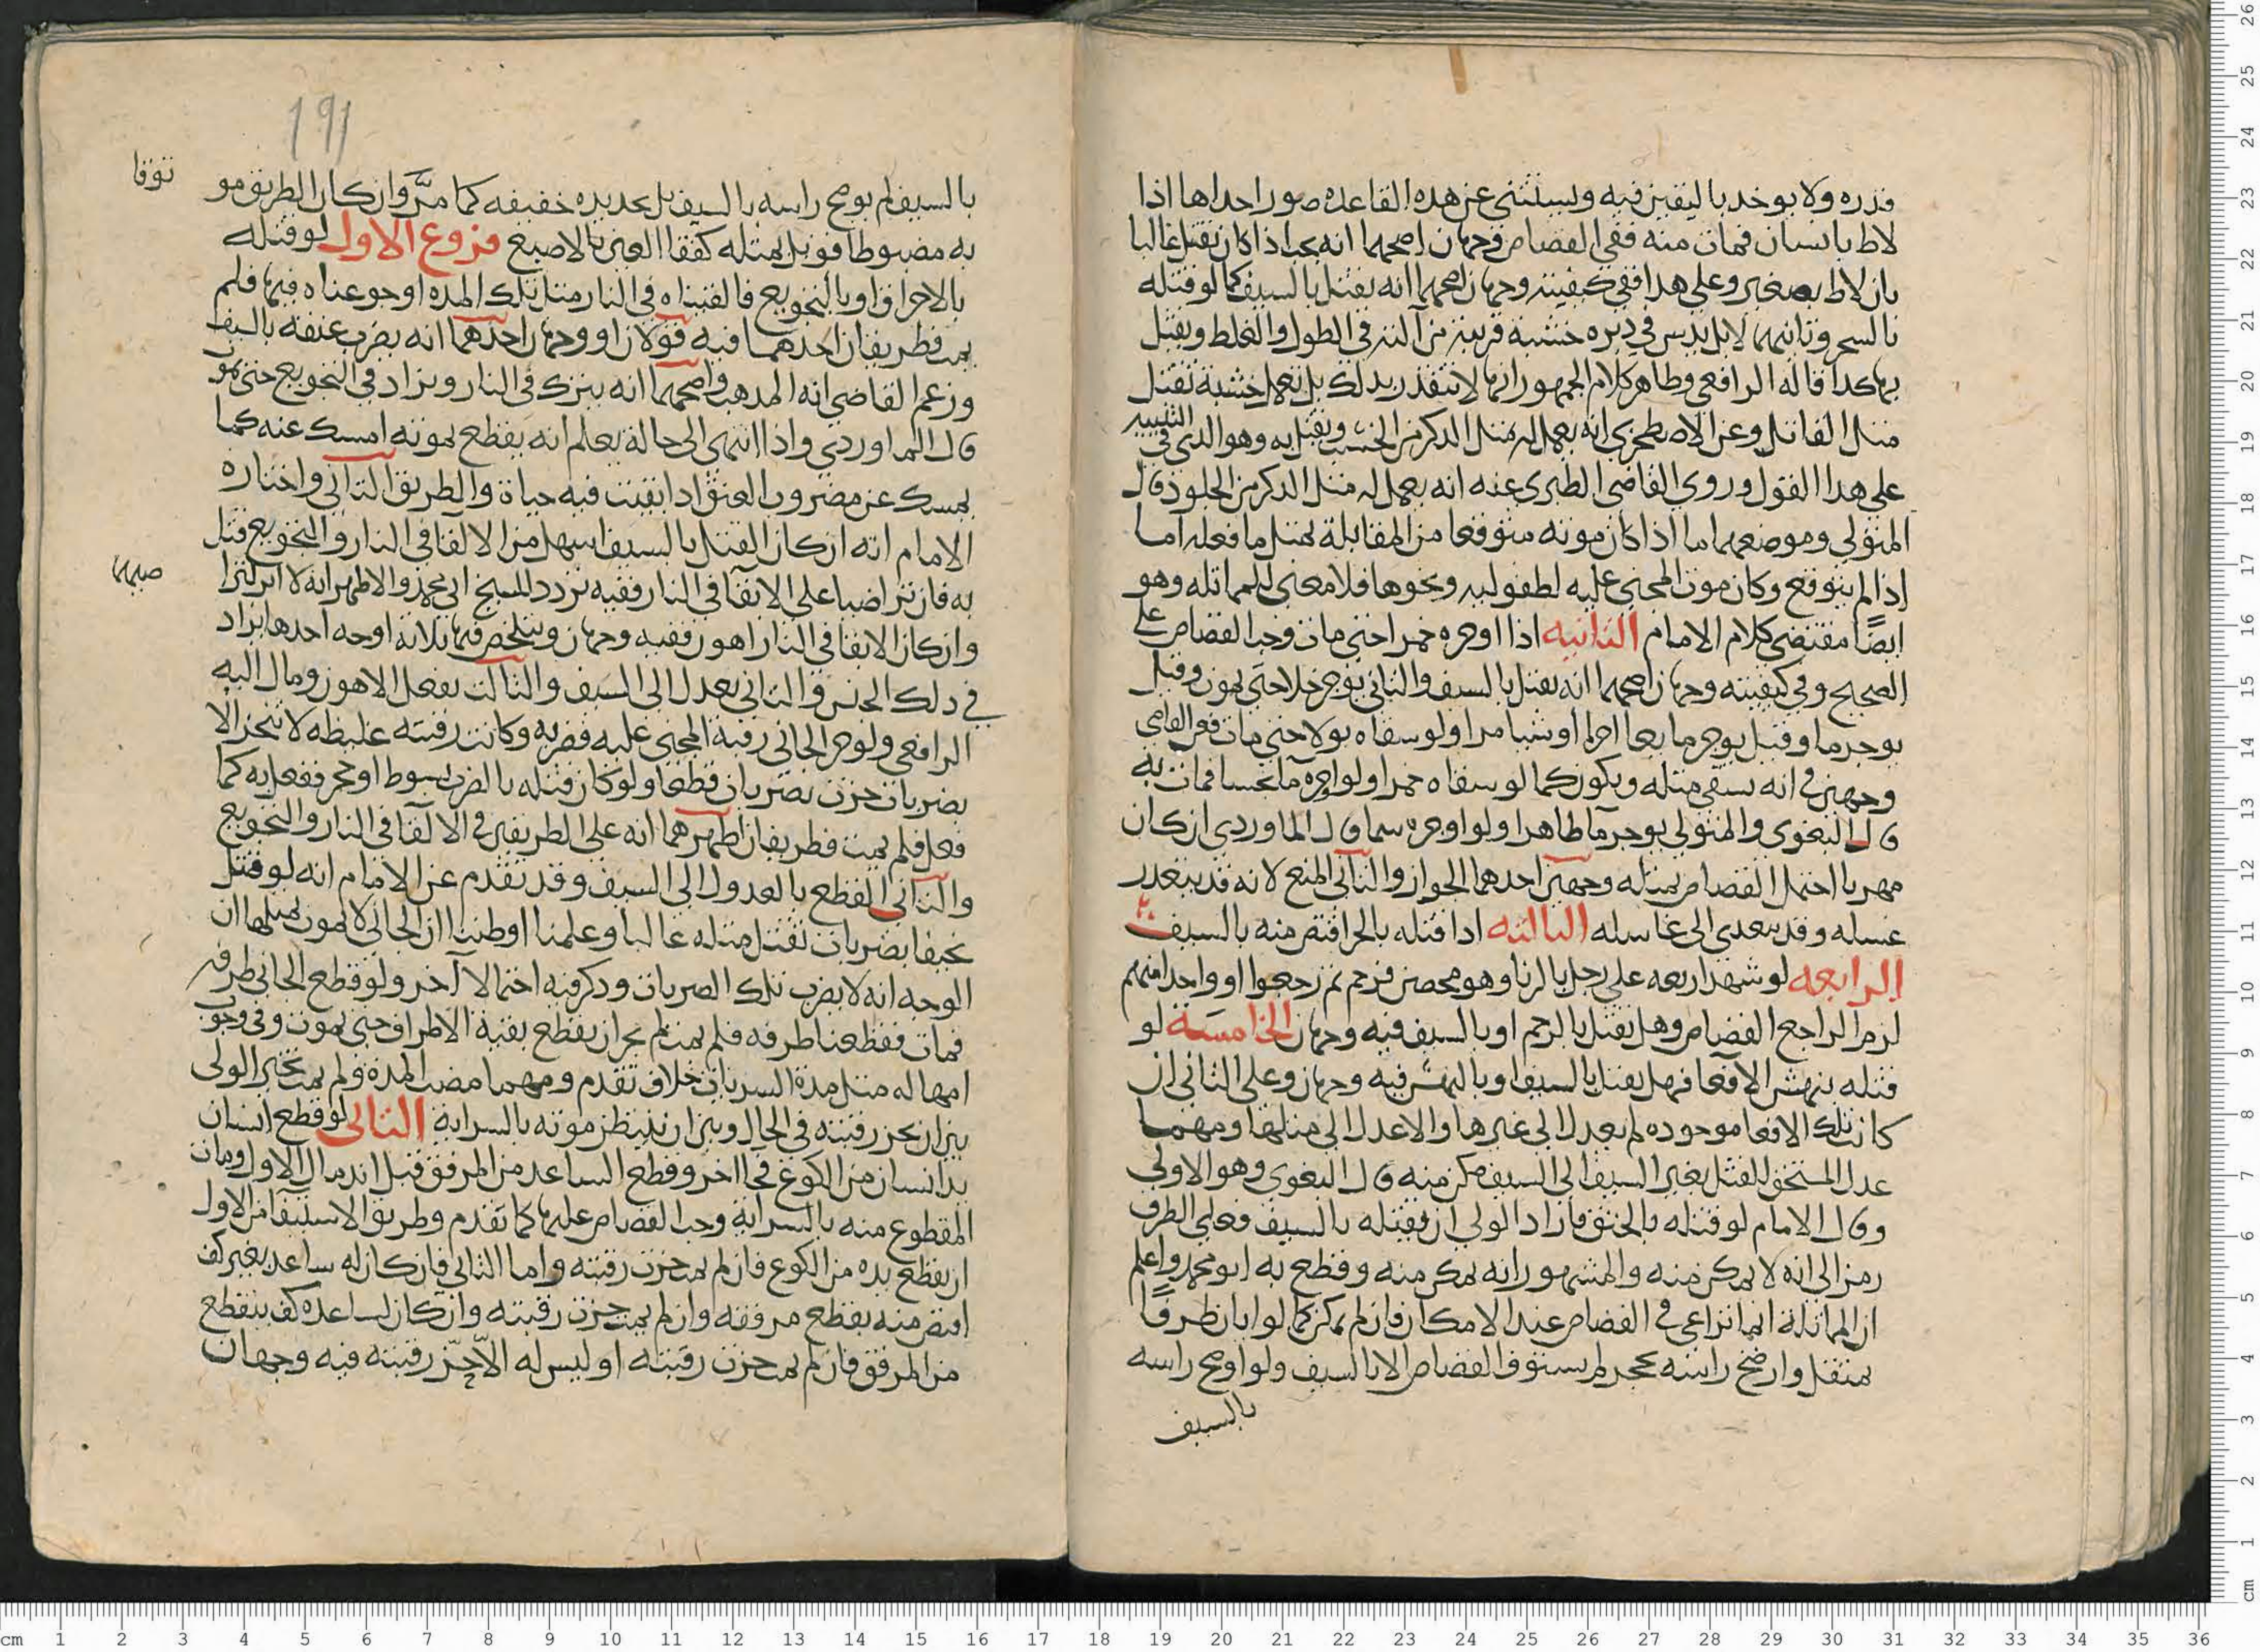 قدره ولا يوخذ باليقين فيه ويستثنى عن هذه القاعده صور احداها اذا
لاط بانسان فمات منه ففي القصاص وجهان اصحهما انه يجب اذا كان يقتل غالبا
بان لاط بصغير وعلى هذا ففي كيفيته وجهان اصحهما انه يقتل بالسيف كما لو قتله
بالسحر وثانيهما لا بل يدس في دبره خشبة قريبة من آلته في الطول والغلظ ويقتل
بها كذا قاله الرافعي وظاهر كلام الجمهور انها لا تتقدر بذلك بل تعمل خشبة تقتل
مثل القاتل وعن الاصطخري انه يعمل له مثل الذكر من الخشب ويقتل به وهو الذي في التنبيه
على هذا القول وروى القاضي الطبري عنه انه يعمل له مثل الذكر من الجلود قال
المتولي وموضعهما اما اذا كان موته متوقعا من المقابلة بمثل ما فعله اما
اذا لم يتوقع وكان موت المجني عليه لطفوليه ونحوها فلا معنى للمماثله وهو
ايضًا مقتضى كلام الامام الثانيه اذا اوجره خمرا حتى مات وجب القصاص على
الصحيح وفي كيفيته وجهان اصحهما انه يقتل بالسيف والثاني يوجر خلا حتى يموت وقيل
يوجر ما وقيل يوجر مايعا اخر او شيا مرا ولو سقاه بولا حتى مات فعن القاضي
وجهين في انه يسقى مثله ويكون كما لو سقاه خمرا ولو اوجره ما نجسا فمات به
قال البغوي والمتولي يوجر ما طاهرا ولو اوجره سما قال الماوردي ان كان
مهريا احتمل القصاص بمثله وجهين احدهما الجواز والثاني المنع لانه قد يتعذر
غسله وقد يتعدى الى غاسله الثالثه اذا قتله بالحر اقتص منه بالسيف
الرابعه لو شهد اربعه على رجل بالزنا وهو محصن فرجم ثم رجعوا او واحد منهم
لزم الراجع القصاص وهل يقتل بالرجم او بالسيف فيه وجهان الخامسة لو
قتله بنهش الافعا فهل يقتل بالسيف او بالنهش فيه وجهان وعلى الثاني ان
كانت تلك الافعا موجوده لم يعدل الى غيرها والا عدل الى مثلها ومهما
عدل المستحق للقتل بغير السيف الى السيف مكن منه قال البغوي وهو الاولى
وقال الامام لو قتله بالخنق فاراد الولي ان يقتله بالسيف فعلى الطرف
رمز الى انه لا يمكن منه والمشهور انه يمكن منه وقطع به ابو محمد واعلم
ان المماثلة انما تراعى في القصاص عند الامكان فان لم يمكن كما لو ابان طرفًا
بمثقل وارضخ راسه بحجر لم يستوف القصاص الا بالسيف ولو اوضح راسه
بالسيف
١٩١
بالسيف لم يوضح راسه بالسيف بل بحديده خفيفه كما مرَّ وان كان الطريق مو
توقا
به مضبوطا قوبل بمثله كفقا العين بالاصبع فروع الاول لو قتله
بالاحراق او بالتجويع فالقيناه في النار مثل تلك المده او جوعناه فيها فلم
يمت فطريقان احدهما فيه قولان او وجهان احدهما انه يضرب عنقه بالسيف
وزعم القاضي انه المذهب واصحهما انه يترك في النار ويزاد في التجويع حتى يموت
قال الماوردي واذا انتهى الى حالة يعلم انه يقطع بموته امسك عنه كما
يمسك عن مضروب العنق اذا بقيت فيه حياة والطريق الثاني واختاره
الامام انه ان كان القتل بالسيف اسهل من الالقا في النار والتجويع قتل
به فان تراضيا على الابقا في النار ففيه تردد للشيخ ابي محمد والاظهر انه لا اثر لترا
ضيهما
وان كان الابقا في النار اهون ففيه وجهان ويتلخص فيها ثلاثة اوجه احدها يزاد
في ذلك الجنس والثاني يعدل الى السيف والثالث يفعل الاهون ومال اليه
الرافعي ولو حز الجاني رقبة المجني عليه فضربه وكانت رقبته غليظه لا تنحز الا
بضربات حزت بضربات قطعا ولو كان قتله بالضرب بسوط او حجر ففعل به كما
فعل فلم يمت فطريقان اظهرهما انه على الطريقين في الالقا في النار والتجويع
والثاني القطع بالعدول الى السيف وقد تقدم عن الامام انه لو قتل
نحيفا بضربات تقتل مثله غالبا وعلمنا او ظننا ان الجاني لا يموت بمثلها ان
الوجه انه لا يضرب تلك الضربات وذكر فيه احتمالا آخر ولو قطع الجاني طرفه
فمات فقطعنا طرفه فلم يمت لم يجز ان يقطع بقية الاطراف حتى يموت وفي وجوب
امهاله مثل مدة السريان خلاف تقدم ومهما مضت المدة ولم يمت تخير الولي
بين ان يحز رقبته في الحال وبين ان ينتظر موته بالسراية الثاني لو قطع انسان
يد انسان من الكوع فجا اخر وقطع الساعد من المرفق قبل اندمال الاول ومات
المقطوع منه بالسراية وجب القصاص عليهما كما تقدم وطريق الاستيفا من الاول
ان يقطع يده من الكوع فان لم يمت حزت رقبته واما الثاني فان كان له ساعد بغير كف
اقتص منه بقطع مرفقه وان لم يمت حزت رقبته وان كان لساعده كف ينقطع
من المرفق فان لم يمت حزت رقبته او ليس له الا حزّ رقبته فيه وجهان